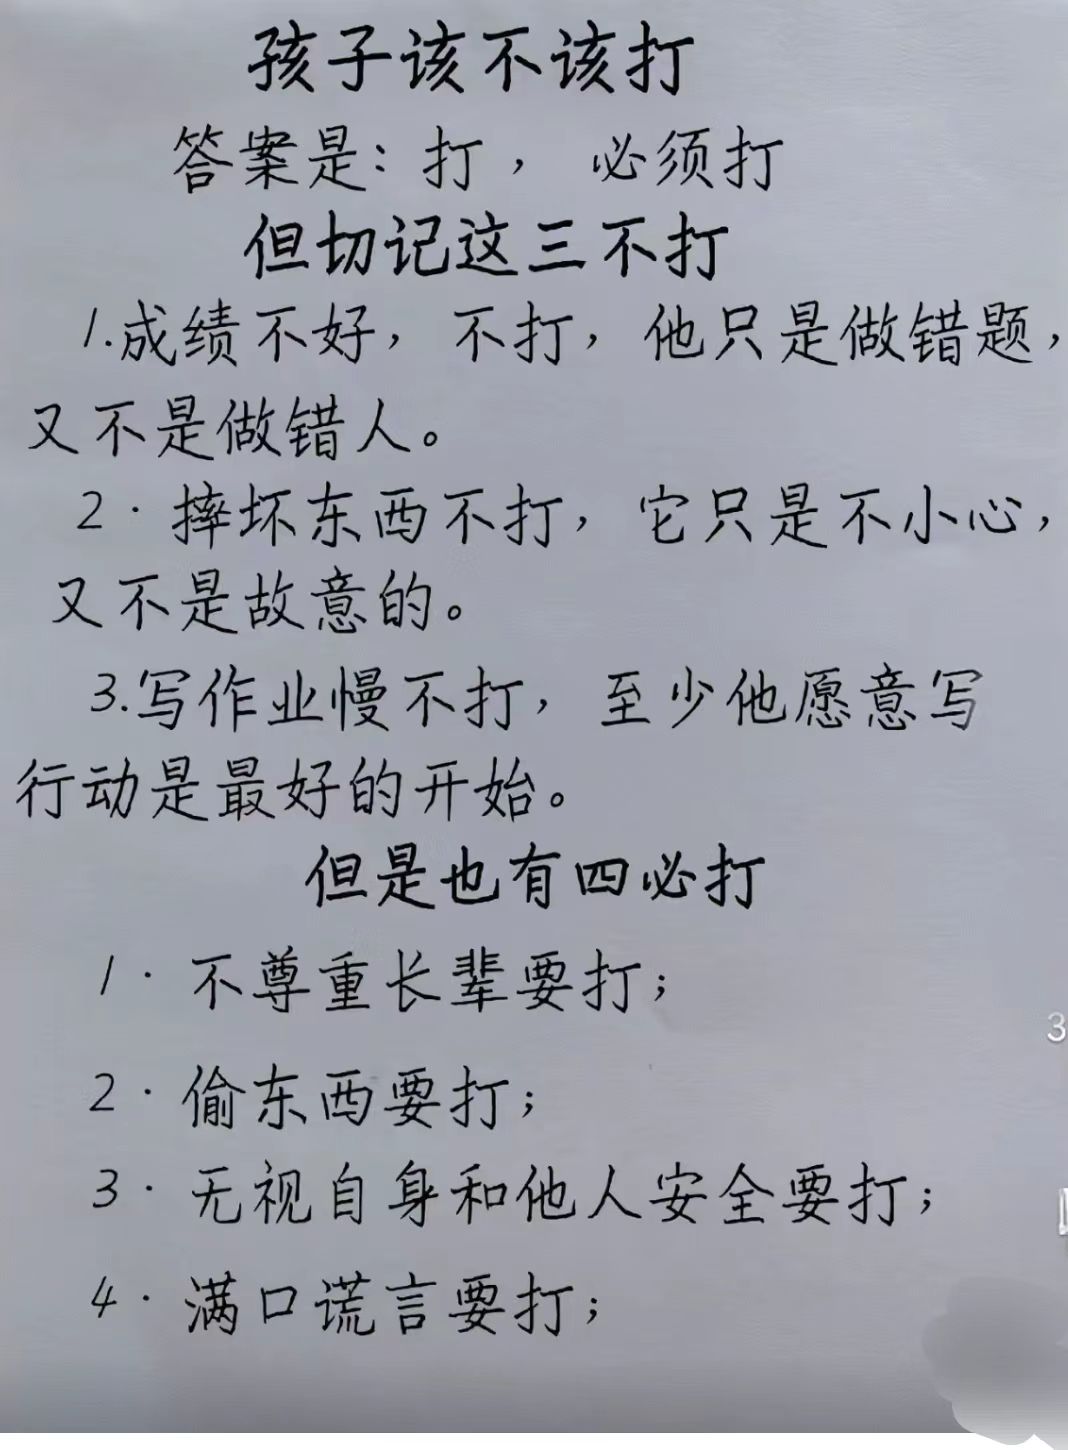 孩子该不该打
答案是：打， 必须打
但切记这三不打
1.成绩不好，不打，他只是做错题，
又不是做错人。
2·摔坏东西不打，它只是不小心，
又不是故意的。
3.写作业慢不打，至少他愿意写
行动是最好的开始。
但是也有四必打
1·不尊重长辈要打；
2·偷东西要打；
3·无视自身和他人安全要打；
4·满口谎言要打；
3